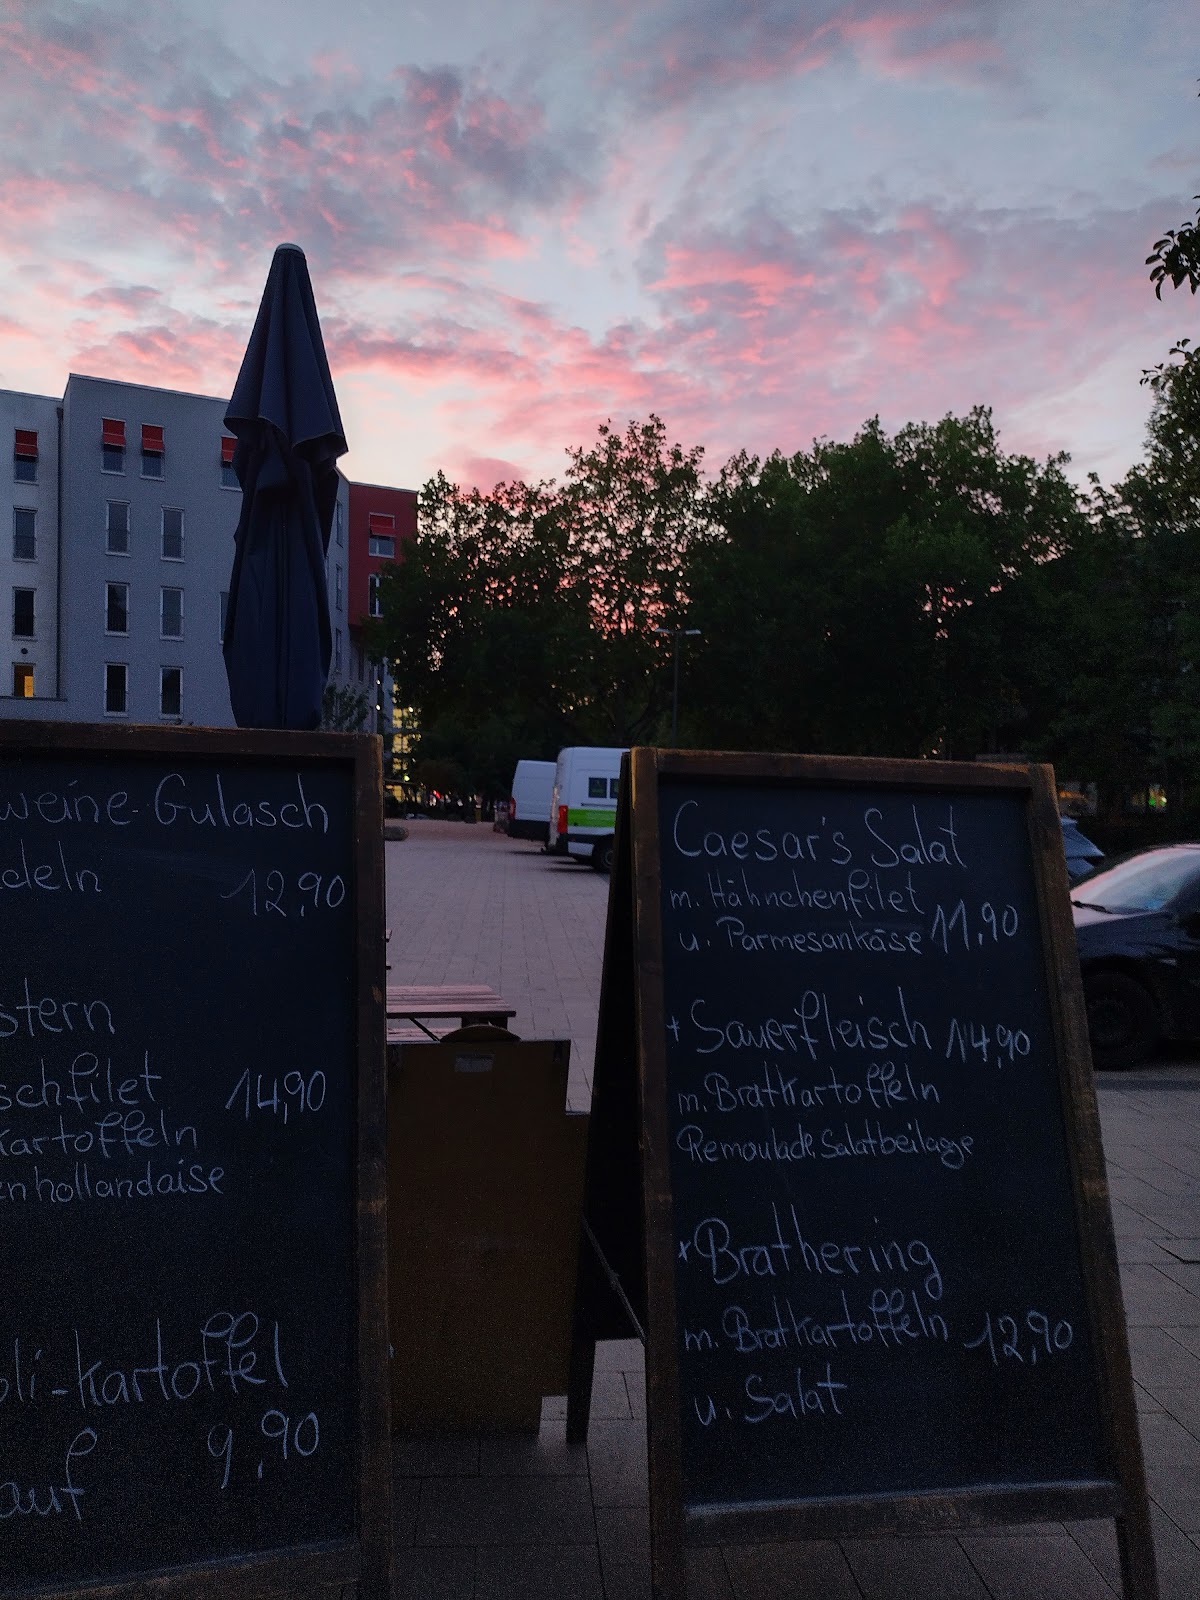 weine-Gulasch
deln 12,90
stern
schfilet 14,90
kartoffeln
enhollandaise
oli-kartoffel
auf 9,90
Caesar's Salat
m. Hähnchenfilet
u. Parmesankäse 11,90
* Sauerfleisch 14,90
m. Bratkartoffeln
Remoulade, Salatbeilage
* Brathering
m. Bratkartoffeln 12,90
u. Salat